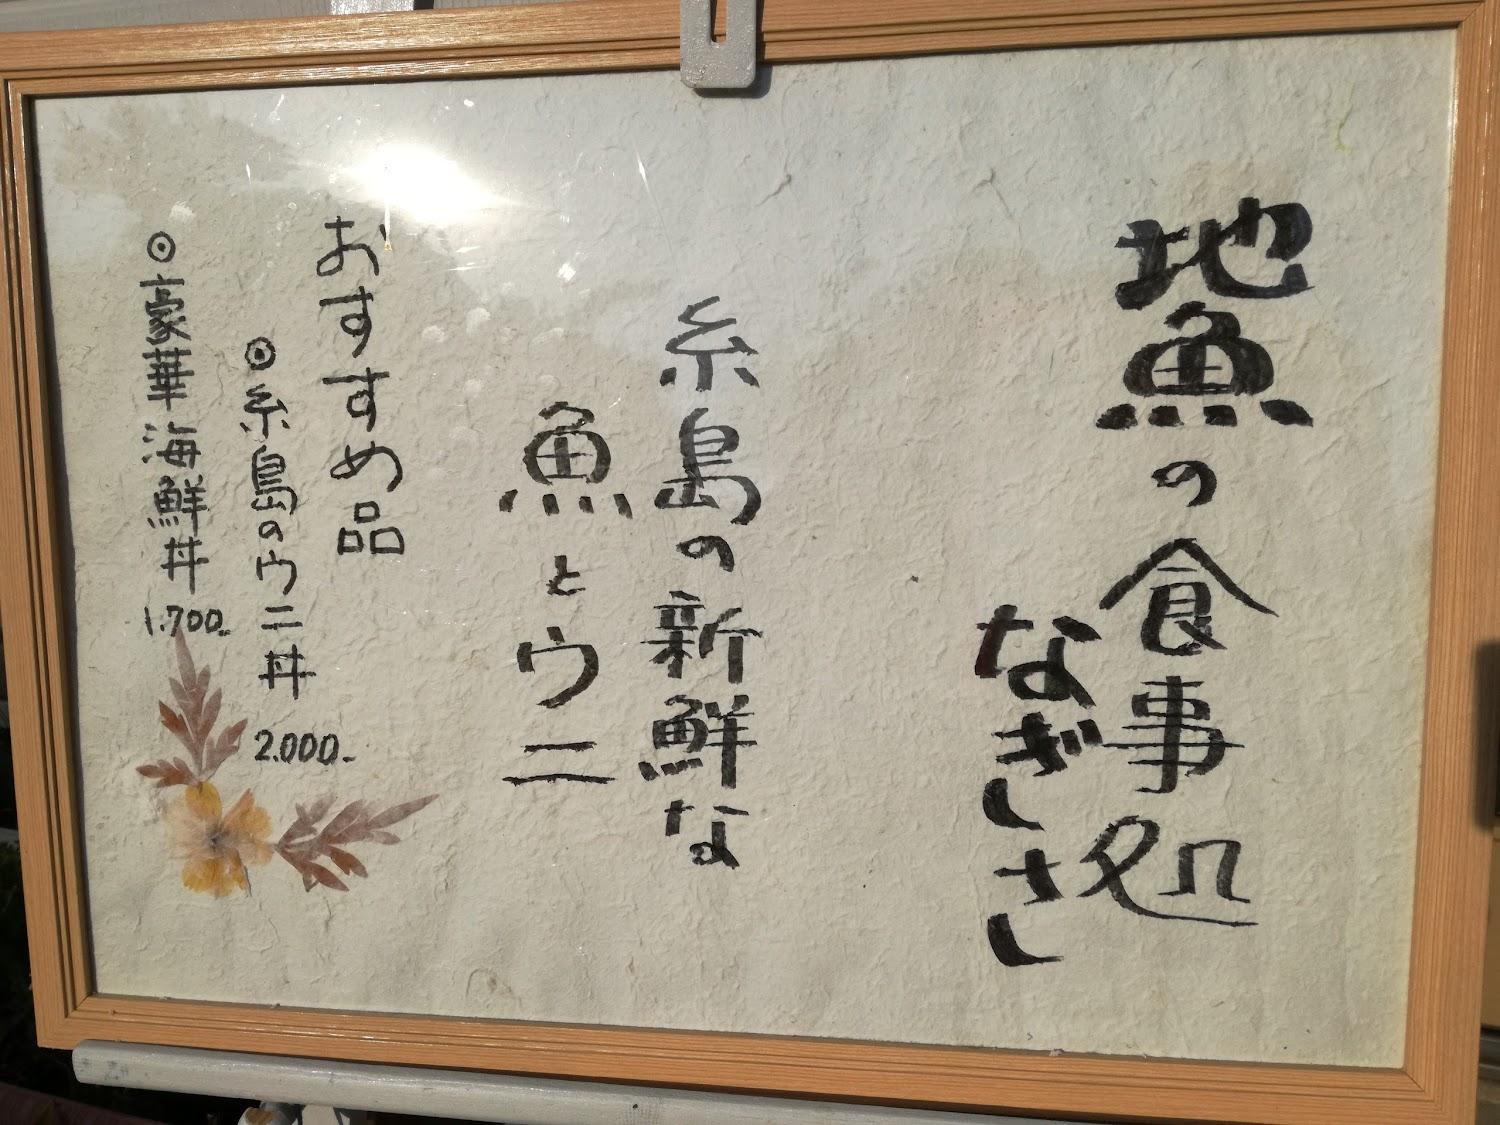 地魚の食事処
なぎさし
糸島の新鮮な
魚とウニ
おすすめ品
◉糸島のウニ丼 2.000-
◉豪華海鮮丼 1.700-